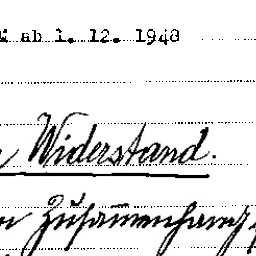 ab 1. 12. 1948
Widerstand.
Zusammenhang